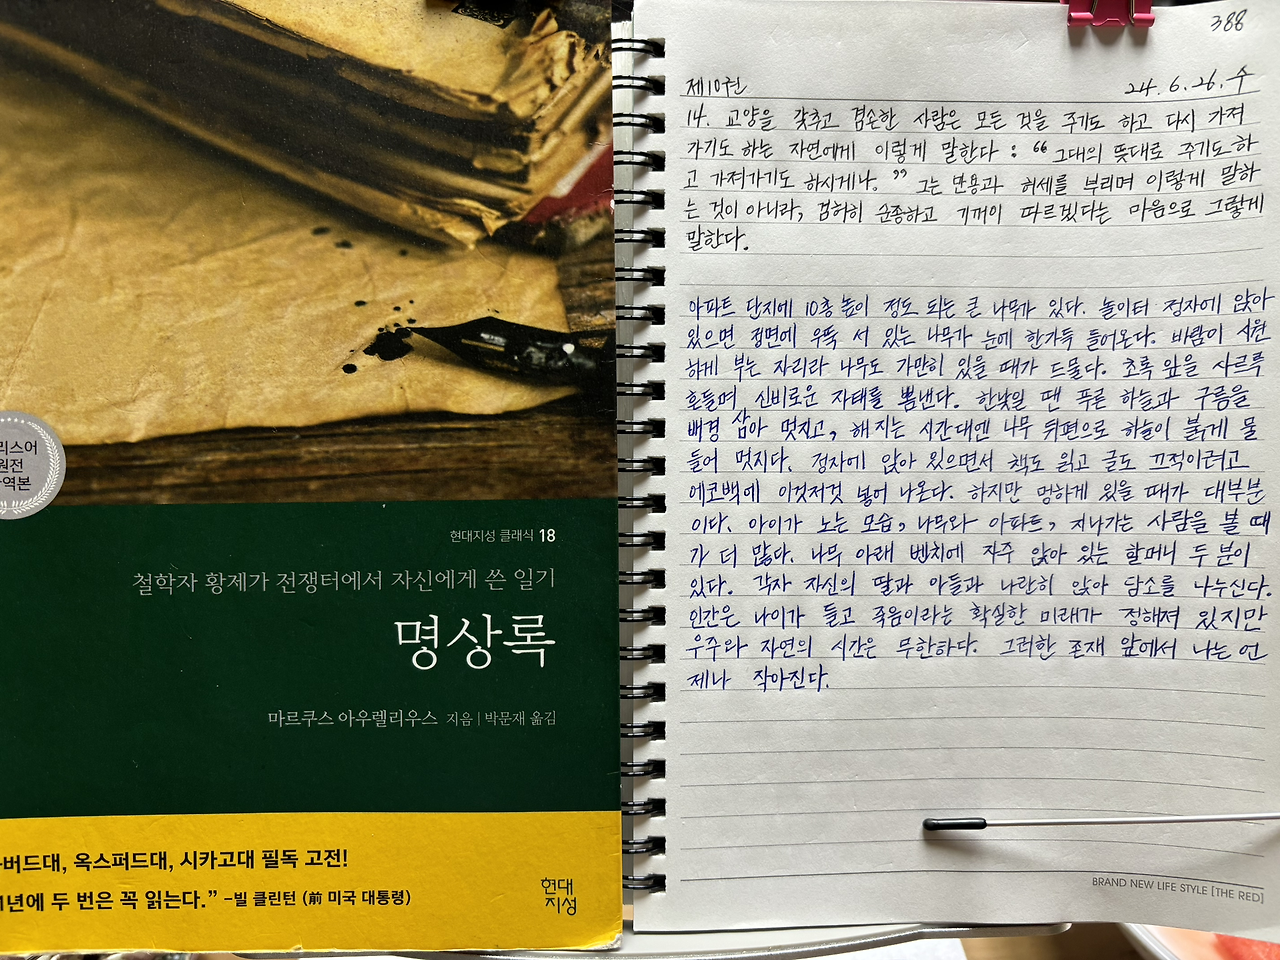 리스어
원전
역본
현대지성 클래식 18
철학자 황제가 전쟁터에서 자신에게 쓴 일기
명상록
마르쿠스 아우렐리우스 지음 | 박문재 옮김
버드대, 옥스퍼드대, 시카고대 필독 고전!
1년에 두 번은 꼭 읽는다.” –빌 클린턴 (前 미국 대통령)
현대
지성
388
제10권 24. 6. 26. 수
14. 교양을 갖추고 겸손한 사람은 모든 것을 주기도 하고 다시 가져
가기도 하는 자연에게 이렇게 말한다 : “그대의 뜻대로 주기도 하
고 가져가기도 하시게나.” 그는 만용과 허세를 부리며 이렇게 말하
는 것이 아니라, 겸허히 순종하고 기꺼이 따르겠다는 마음으로 그렇게
말한다.
아파트 단지에 10층 높이 정도 되는 큰 나무가 있다. 놀이터 정자에 앉아
있으면 정면에 우뚝 서 있는 나무가 눈에 한가득 들어온다. 바람이 시원
하게 부는 자리라 나무도 가만히 있을 때가 드물다. 초록 잎을 사르륵
흔들며 신비로운 자태를 뽐낸다. 한낮일 땐 푸른 하늘과 구름을
배경 삼아 멋지고, 해 지는 시간대엔 나무 뒤편으로 하늘이 붉게 물
들어 멋지다. 정자에 앉아 있으면서 책도 읽고 글도 끄적이려고
에코백에 이것저것 넣어 나온다. 하지만 멍하게 있을 때가 대부분
이다. 아이가 노는 모습, 나무와 아파트, 지나가는 사람을 볼 때
가 더 많다. 나무 아래 벤치에 자주 앉아 있는 할머니 두 분이
있다. 각자 자신의 딸과 아들과 나란히 앉아 담소를 나누신다.
인간은 나이가 들고 죽음이라는 확실한 미래가 정해져 있지만
우주와 자연의 시간은 무한하다. 그러한 존재 앞에서 나는 언
제나 작아진다.
BRAND NEW LIFE STYLE [THE RED]